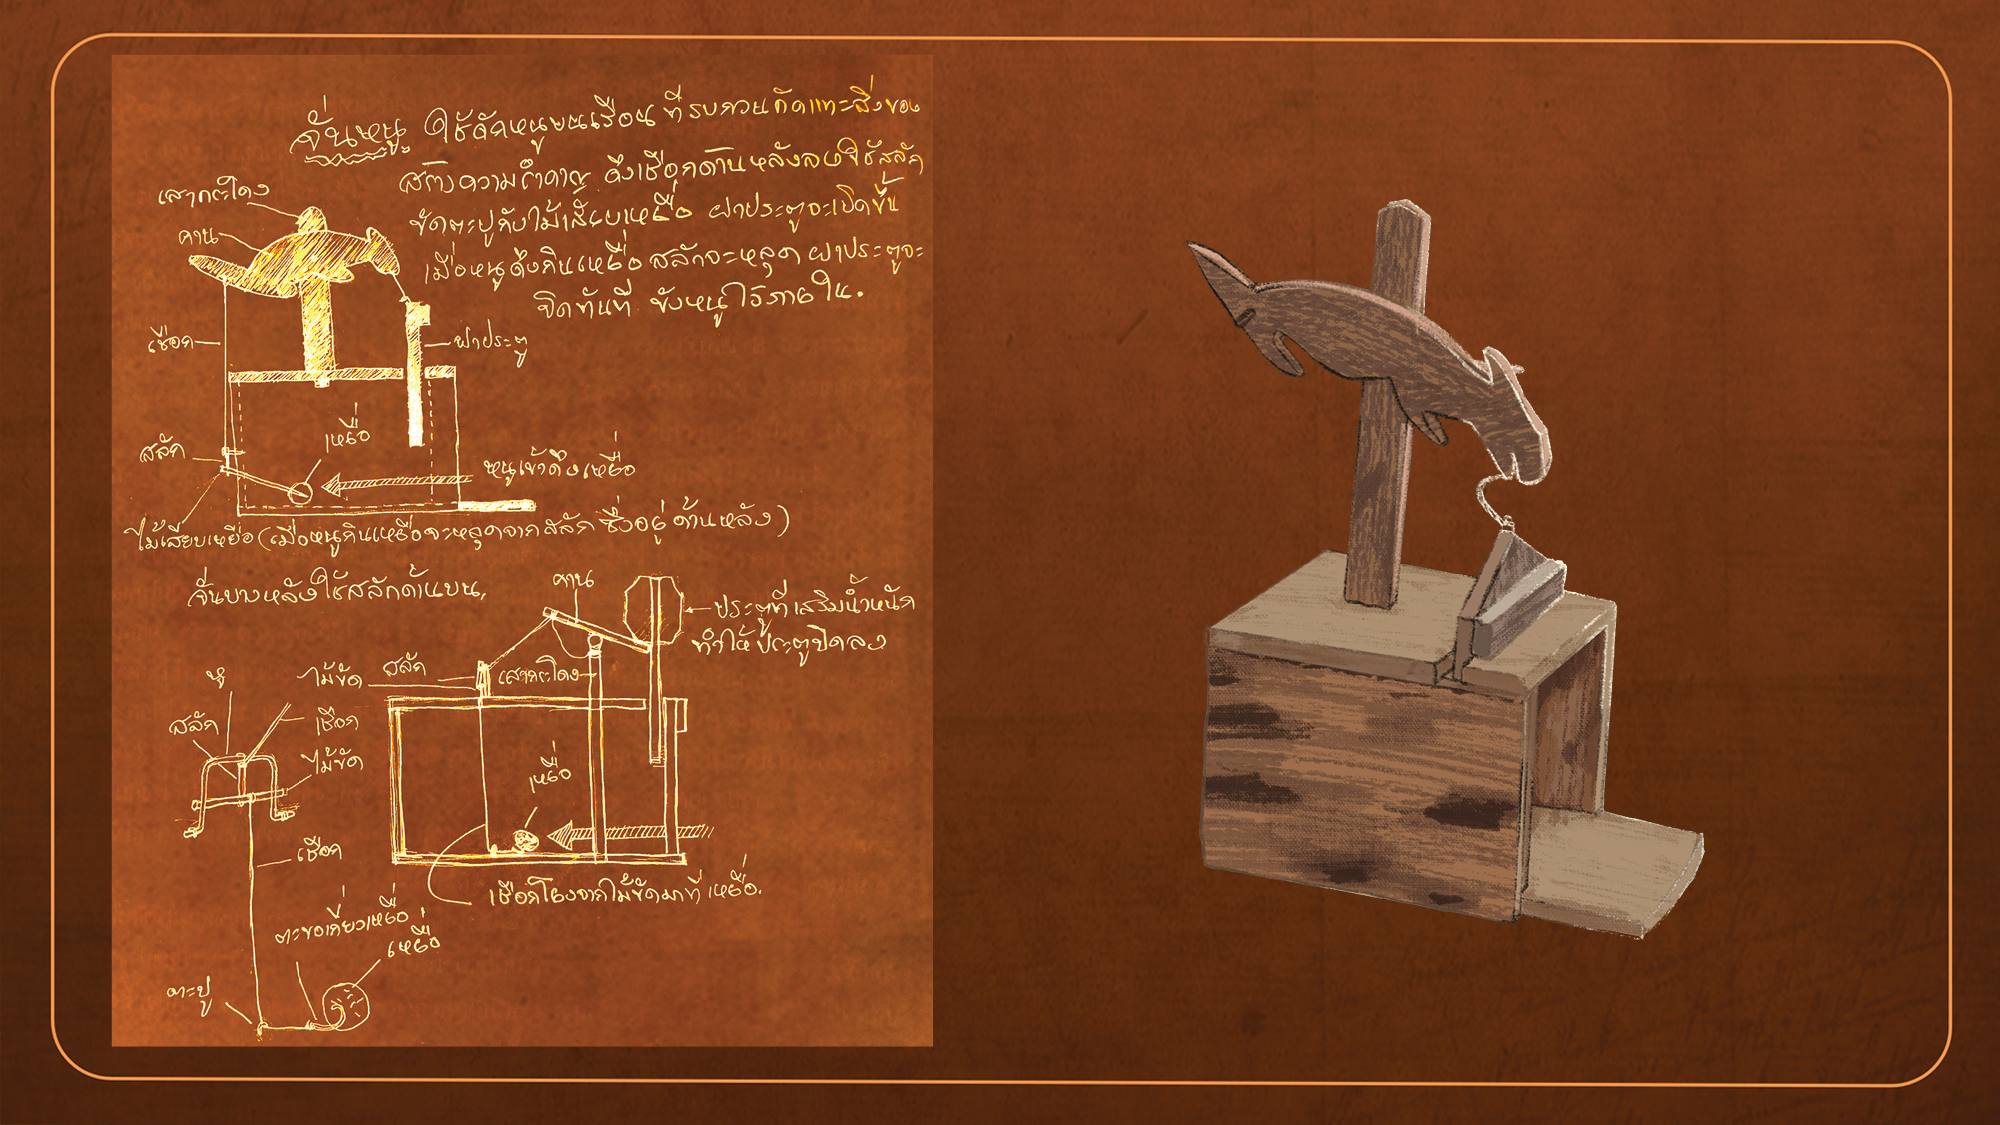 จั่นหนู ใช้ดักหนูบนเรือน ที่รบกวนกัดแทะสิ่งของ
สร้างความรำคาญ ดึงเชือกด้านหลังลงใช้สลัก
ขัดตะปูกับไม้เสียบเหยื่อ ฝาประตูจะเปิดขึ้น
เมื่อหนูดึงกินเหยื่อ สลักจะหลุด ฝาประตูจะ
ปิดทันที ขังหนูไว้ภายใน.
เสากระโดง
คาน
เชือก
ฝาประตู
เหยื่อ
สลัก
หนูเข้าดึงเหยื่อ
ไม้เสียบเหยื่อ (เมื่อหนูกินเหยื่อจะหลุดจากสลัก ซึ่งอยู่ด้านหลัง)
จั่นบางหลังใช้สลักด้านบน,
คาน
ประตูที่เสริมน้ำหนัก
ทำให้ประตูปิดลง
สลัก
เสากระโดง
ไม้ขัด
หู
สลัก
เชือก
ไม้ขัด
เหยื่อ
เชือก
เชือกโยงจากไม้ขัดมาที่เหยื่อ.
ตะขอเกี่ยวเหยื่อ
เหยื่อ
ตะปู